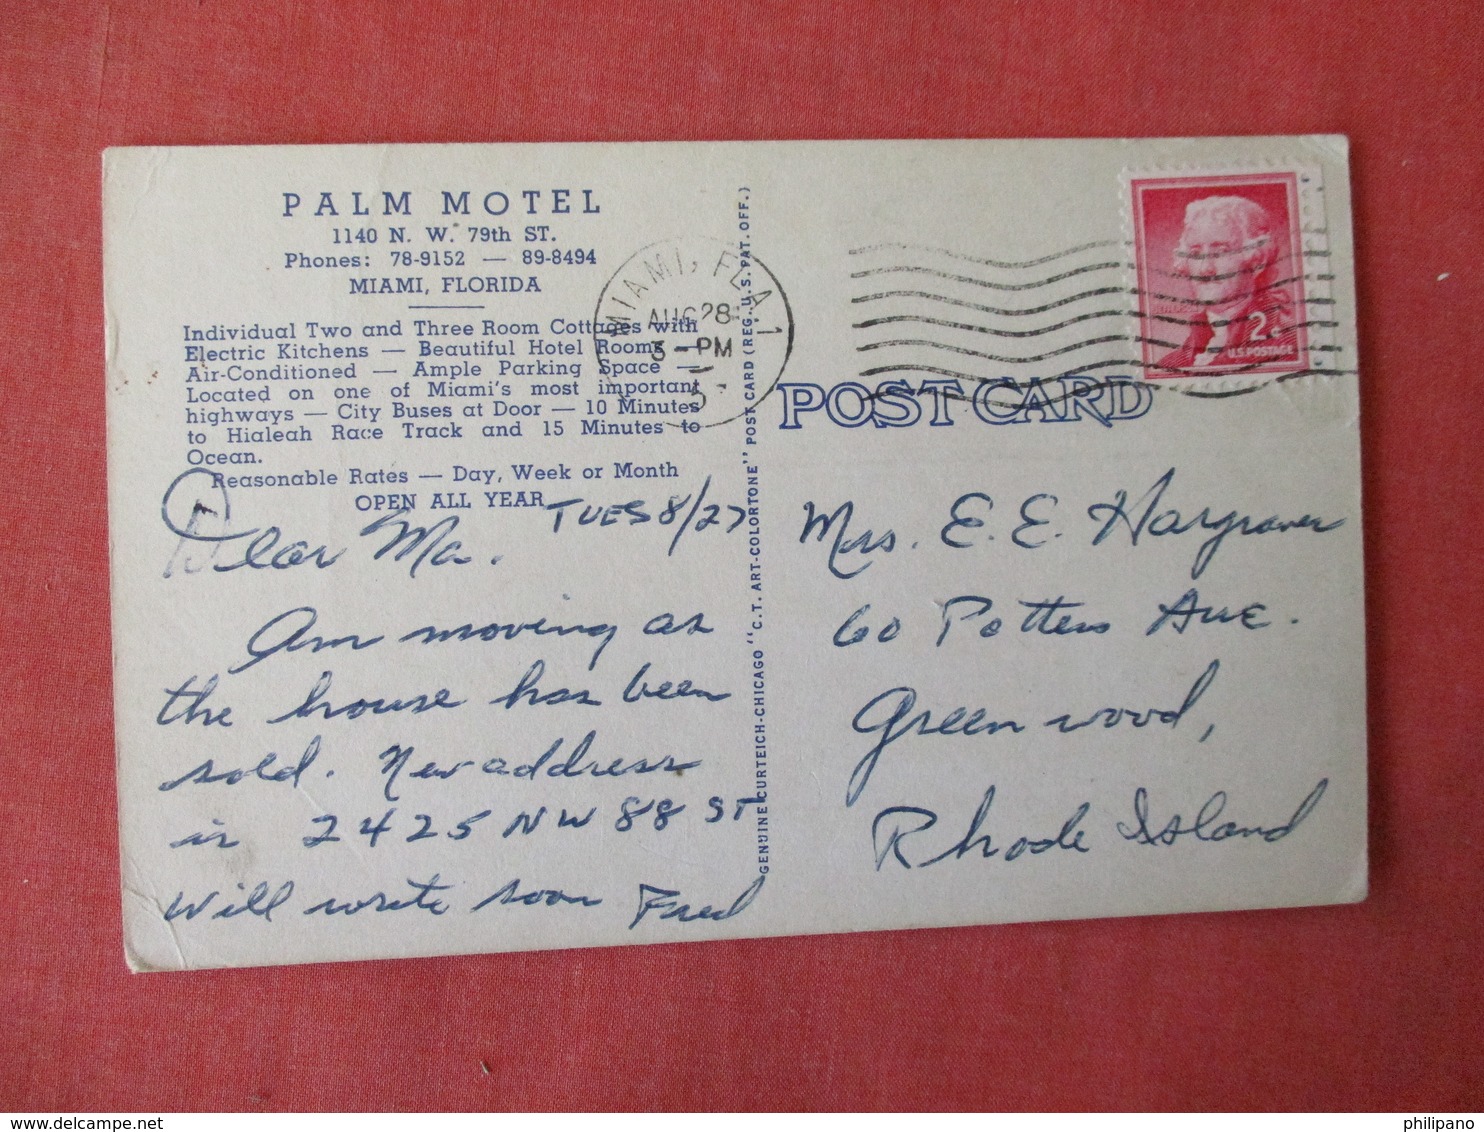 PALM MOTEL
1140 N. W. 79th ST.
Phones: 78-9152 — 89-8494
MIAMI, FLORIDA
Individual Two and Three Room Cottages with
Electric Kitchens — Beautiful Hotel Rooms —
Air-Conditioned — Ample Parking Space —
Located on one of Miami's most important
highways — City Buses at Door — 10 Minutes
to Hialeah Race Track and 15 Minutes to
Ocean.
Reasonable Rates — Day, Week or Month
OPEN ALL YEAR
TUES 8/27
Dear Ma.
Am moving as
the house has been
sold. New address
is 2425 NW 88 ST
Will write soon Fred
GENUINE CURTEICH-CHICAGO "C.T. ART-COLORTONE" POST CARD (REG. U.S. PAT. OFF.)
MIAMI, FLA 1
AUG 28
3 - PM
2¢
U.S. POSTAGE
POST CARD
Mrs. E. E. Hargraves
60 Potters Ave.
Greenwood,
Rhode Island
philipano